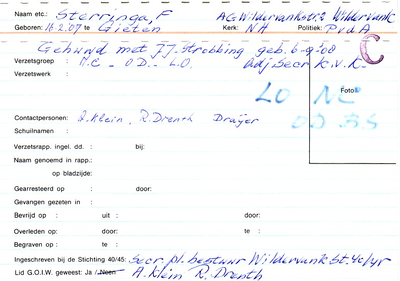 Naam etc.: Sterringa, F A.G. Wildervankstr. 2 Wildervank
Geboren: 16.2.07 te Gieten Kerk: NH Politiek: PvdA
Gehuwd met J.J. Strobbing geb. 6-9-'08
Verzetsgroep : N.C. - O.D. - L.O. Adj Secr K.v.K.
C
Verzetswerk :
LO NC
Foto
OD BS
Contactpersonen: A. Klein, R. Drenth Draijer
Schuilnaam :
Verzetsrapp. ingel. dd. : bij:
Naam genoemd in rapp.:
op bladzijde:
Gearresteerd op : door:
Gevangen gezeten in :
Bevrijd op : uit : door:
Overleden op: door: te :
Begraven op : te :
Ingeschreven bij de Stichting 40/45: Secr. pl. bestuur Wildervank St. 40/45
Lid G.O.I.W. geweest: Ja / Neen A. Klein R. Drenth